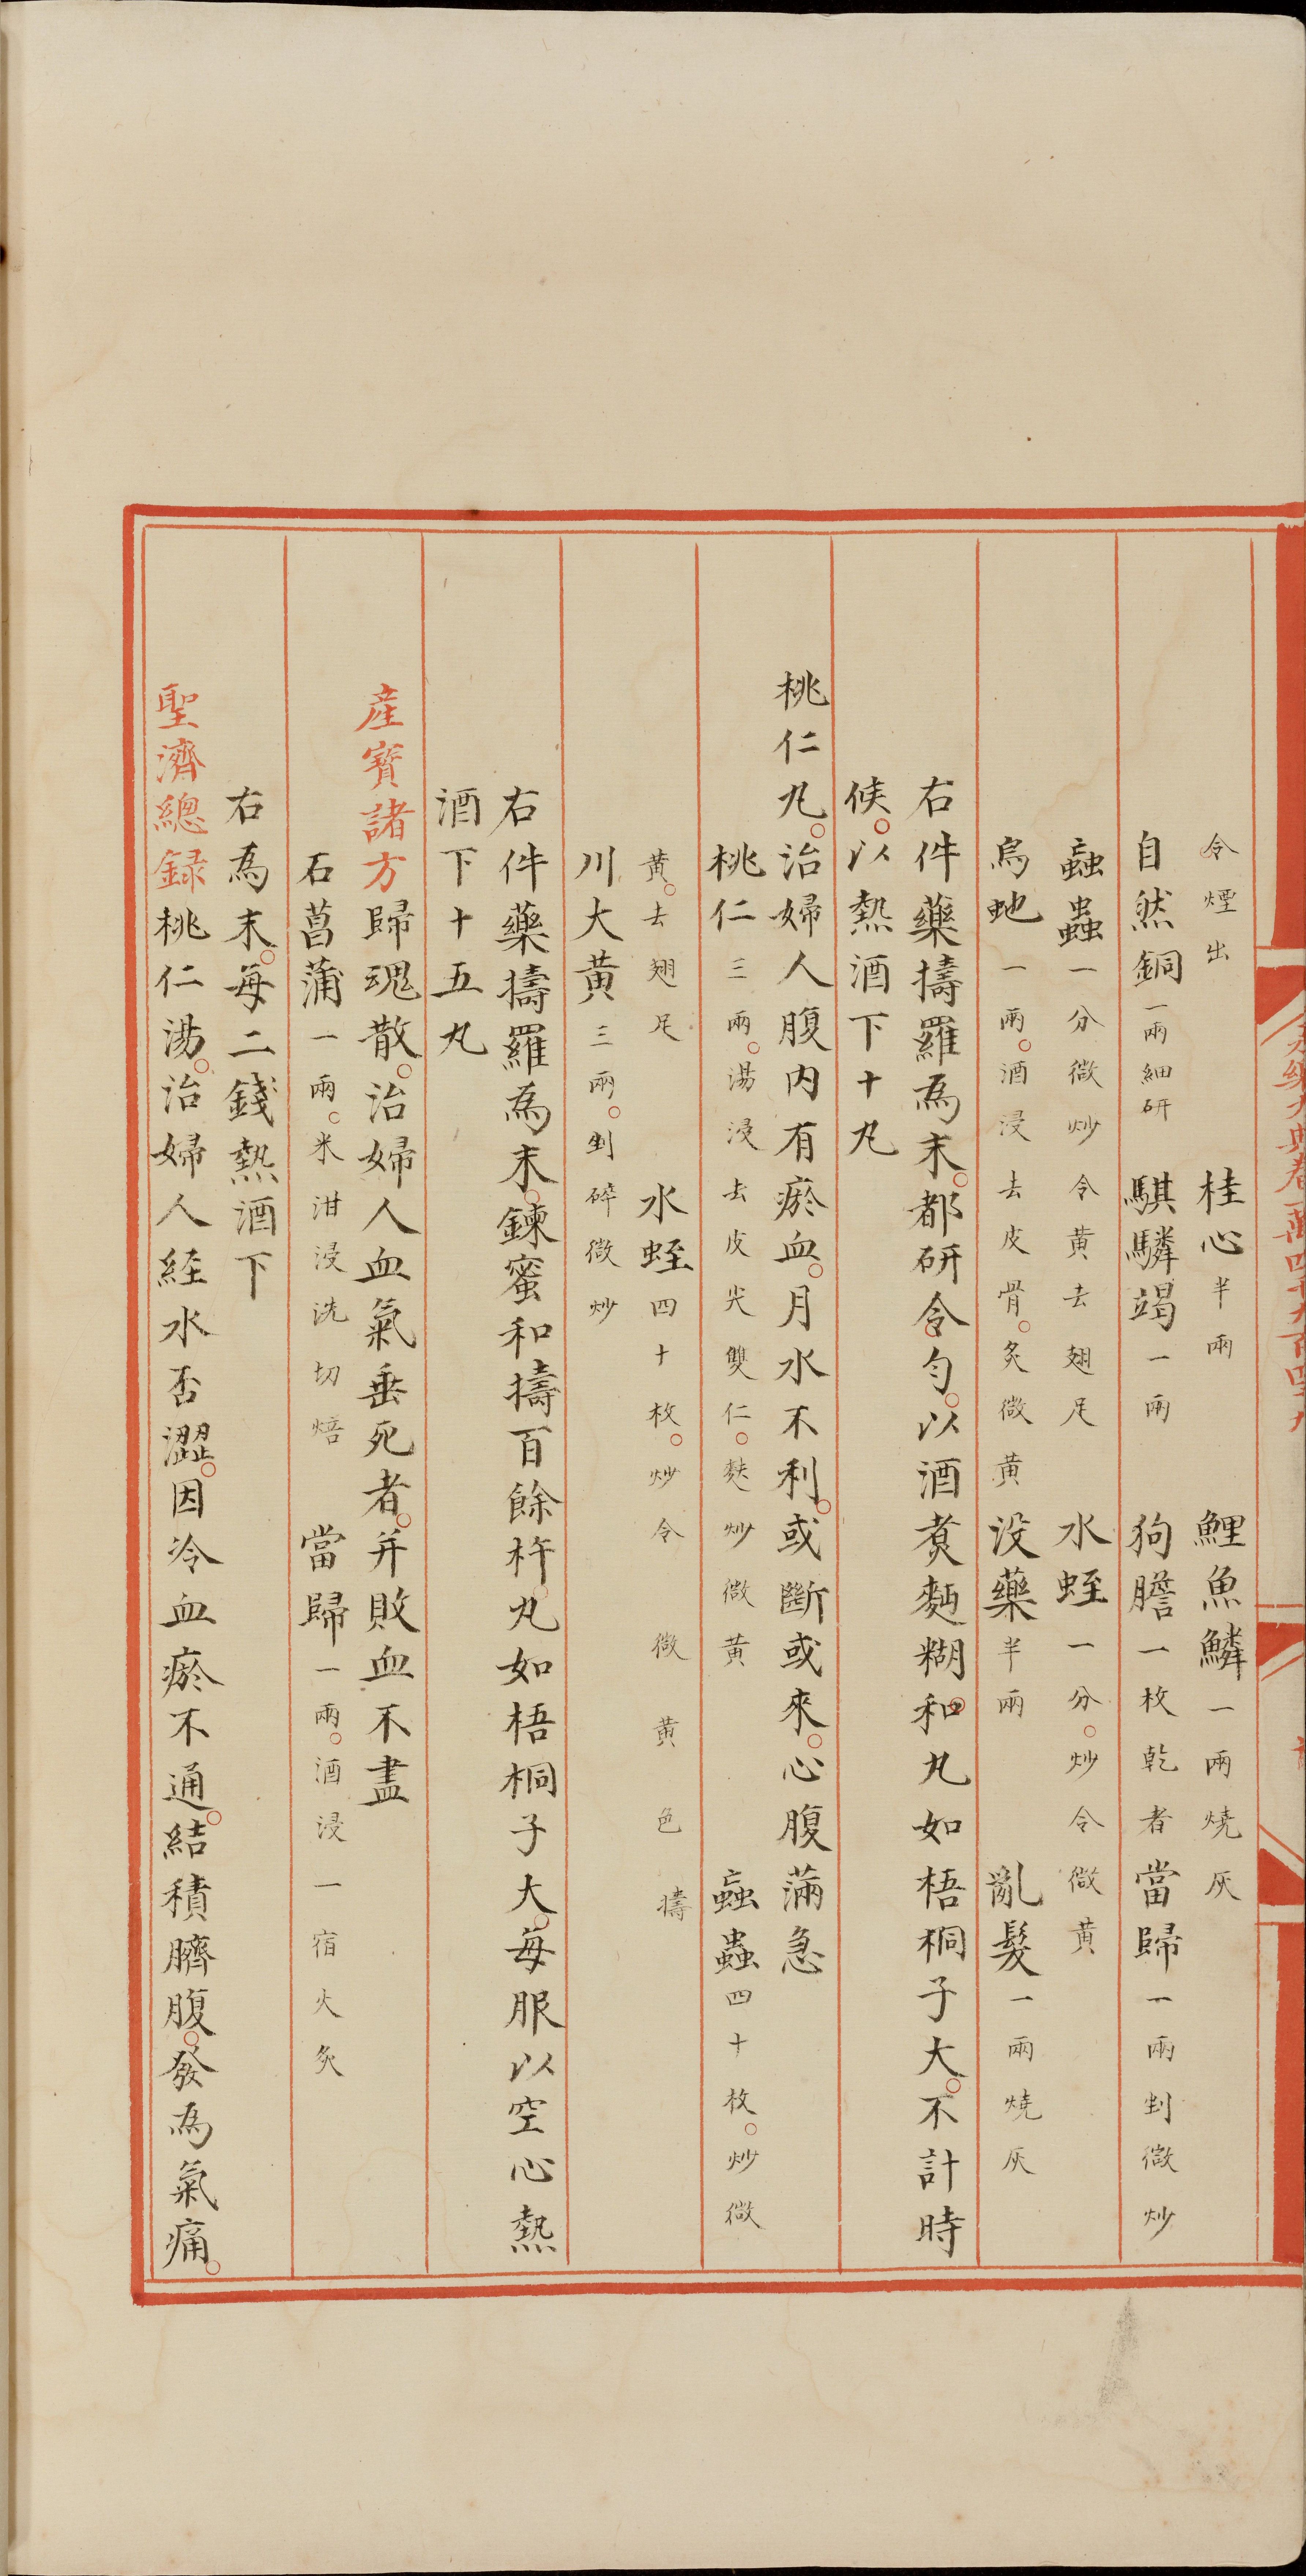 令煙出　桂心半兩　鯉魚鱗一兩燒灰
自然銅一兩細研　騏驎竭一兩　狗膽一枚乾者　當歸一兩剉微炒
蝱蟲一分微炒令黃去翅足　水蛭一分炒令微黃
烏虵一兩酒浸去皮骨炙微黃　没藥半兩　亂髮一兩燒灰
右件藥擣羅為末都研令勻以酒煑麪糊和丸如梧桐子大不計時
候以熱酒下十丸
桃仁丸治婦人腹内有瘀血月水不利或斷或來心腹滿急
桃仁三兩湯浸去皮尖雙仁麩炒微黃　蝱蟲四十枚炒微
黄去翅足　水蛭四十枚炒令微黃色擣
川大黄三兩剉碎微炒
右件藥擣羅為末鍊蜜和擣百餘杵丸如梧桐子大每服以空心熱
酒下十五丸
産寳諸方歸魂散治婦人血氣垂死者并敗血不盡
石菖蒲一兩米泔浸洗切焙　當歸一兩酒浸一宿火炙
右為末每二錢熱酒下
聖濟總録桃仁湯治婦人経水否澀因冷血瘀不通結積臍腹發為氣痛